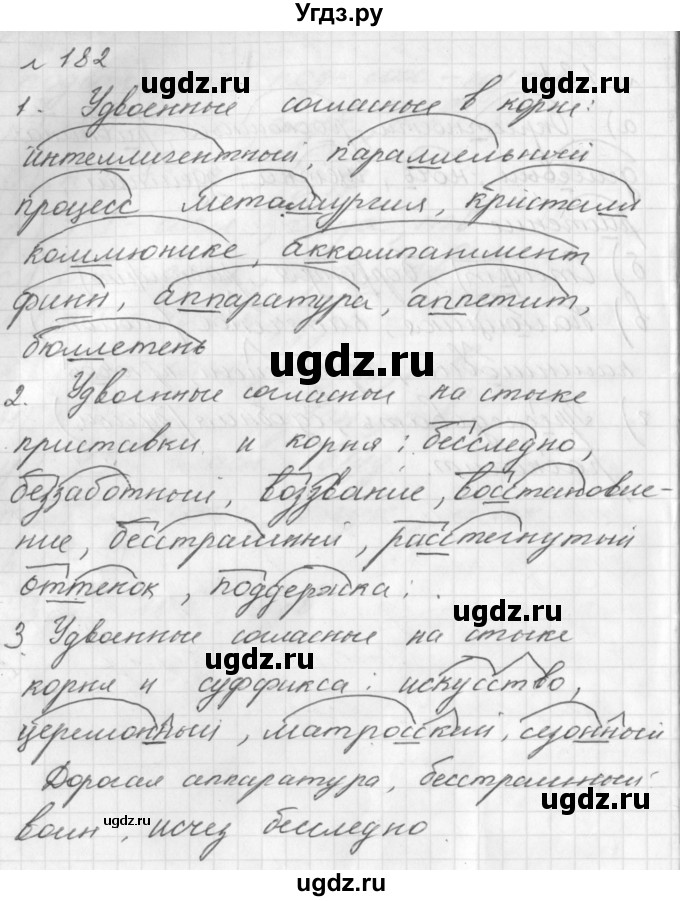 Угдз.ру
№ 182
1. Удвоенные согласные в корне:
интеллигентный, параллельный
процесс металлургия, кристалл
коммюнике, аккомпанимент
финн, аппаратура, аппетит,
бюллетень
2. Удвоенные согласные на стыке
приставки и корня: бесследно,
беззаботный, воззвание, восстановле-
ние, бесстрашный, расстегнутый
оттенок, поддержка.
3 Удвоенные согласные на стыке
корня и суффикса: искусство,
церемонный, матросский, сезонный
Дорогая аппаратура, бесстрашный
воин, исчез бесследно
ugdz.ru
ugdz.ru
ugdz.ru
ugdz.ru
ugdz.ru
ugdz.ru
ugdz.ru
ugdz.ru
ugdz.ru
ugdz.ru